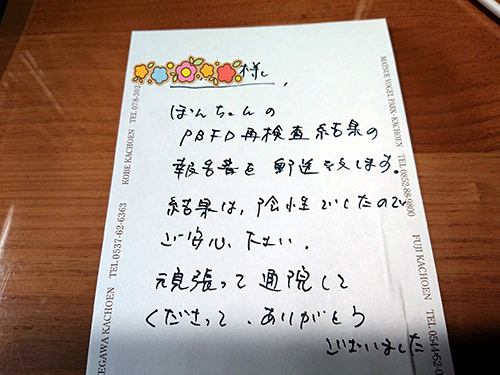 様
ぽんちゃんの
PBFD再検査結果の
報告書を郵送致します。
結果は、陰性でしたので
ご安心下さい。
頑張って通院して
くださって、ありがとう
ございました
KOBE KACHOEN TEL.078-302
EGAWA KACHOEN TEL.0537-62-6363
MATSUE VOGEL PARK・KACHOEN TEL.0852-88-9800
FUJI KACHOEN TEL.0544-52-0